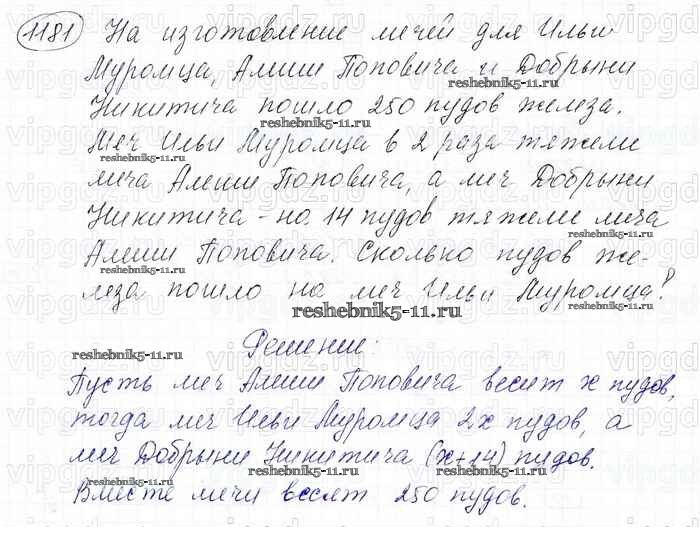 1181 На изготовление мечей для Ильи
Муромца, Алеши Поповича и Добрыни
Никитича пошло 250 пудов железа.
Меч Ильи Муромца в 2 раза тяжелее
меча Алеши Поповича, а меч Добрыни
Никитича - на 14 пудов тяжелее меча
Алеши Поповича. Сколько пудов же-
леза пошло на меч Ильи Муромца?
Решение:
Пусть меч Алеши Поповича весит x пудов,
тогда меч Ильи Муромца 2x пудов, а
меч Добрыни Никитича (x+14) пудов.
Вместе мечи весят 250 пудов.
reshebnik5-11.ru
reshebnik5-11.ru
reshebnik5-11.ru
reshebnik5-11.ru
reshebnik5-11.ru
reshebnik5-11.ru
reshebnik5-11.ru
reshebnik5-11.ru
reshebnik5-11.ru
reshebnik5-11.ru